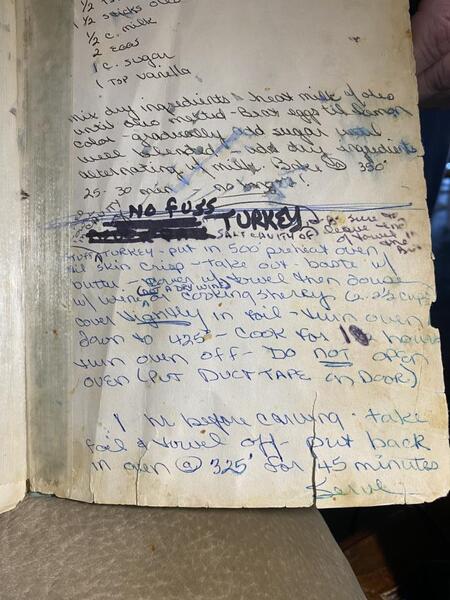 1/2 t. 
1 1/2 sticks oleo
1/2 c. milk
2 eggs
1 c. sugar
1 tsp vanilla
mix dry ingredients - heat milk & oleo
until oleo melted - Beat eggs til lemon
color - gradually add sugar until
well blended - add dry ingredients
alternating w/ milk. Bake @ 350°
25-30 min - no longer!
NO FUSS TURKEY
SALT CAVITY OF
TURKEY - put in 500° preheat oven
til skin crisp - take out - baste w/
butter - cover w/ towel then douse
w/ wine (DRY WINE) or cooking sherry (2-2 1/2 cups)
cover tightly in foil - turn oven
down to 425° - cook for 1 hour
turn oven off - DO NOT OPEN
OVEN (PUT DUCT TAPE ON DOOR)
1 hr before carving - take
foil & towel off - put back
in oven @ 325° for 45 minutes
Serve